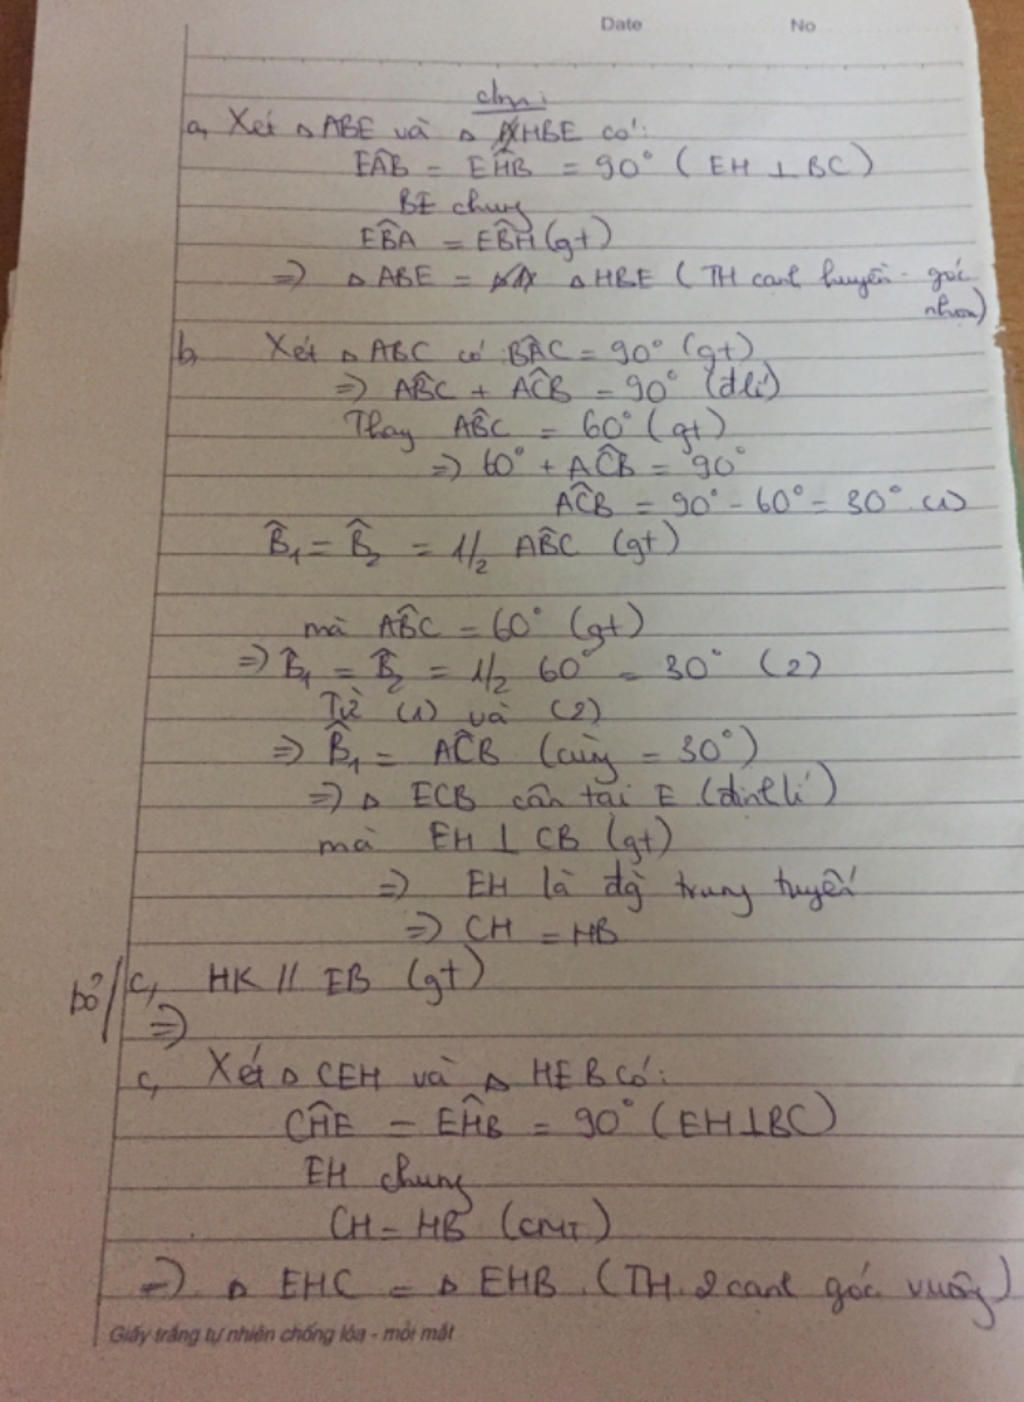 Date No
cm:
a, Xét △ ABE và △ HBE có:
EÂB = EĤB = 90° ( EH ⊥ BC )
BE chung
EB̂A = EB̂H (gt)
=> △ ABE = △ HBE ( TH cạnh huyền - góc
nhọn)
b, Xét △ ABC có BÂC = 90° (gt)
=> AB̂C + AĈB = 90° (đlí)
Thay AB̂C = 60° (gt)
=> 60° + AĈB = 90°
AĈB = 90° - 60° = 30° (1)
B̂₁ = B̂₂ = 1/2 AB̂C (gt)
mà AB̂C = 60° (gt)
=> B̂₁ = B̂₂ = 1/2 60° = 30° (2)
Từ (1) và (2)
=> B̂₁ = AĈB (cùng = 30°)
=> △ ECB cân tại E (định lí)
mà EH ⊥ CB (gt)
=> EH là đg trung tuyến
=> CH = HB
bỏ / c, HK // EB (gt)
=>
c, Xét △ CEH và △ HEB có:
CĤE = EĤB = 90° ( EH ⊥ BC )
EH chung
CH = HB (CMT)
=> △ EHC = △ EHB (TH 2 cạnh góc vuông)
Giấy trắng tự nhiên chống lóa - mỏi mắt